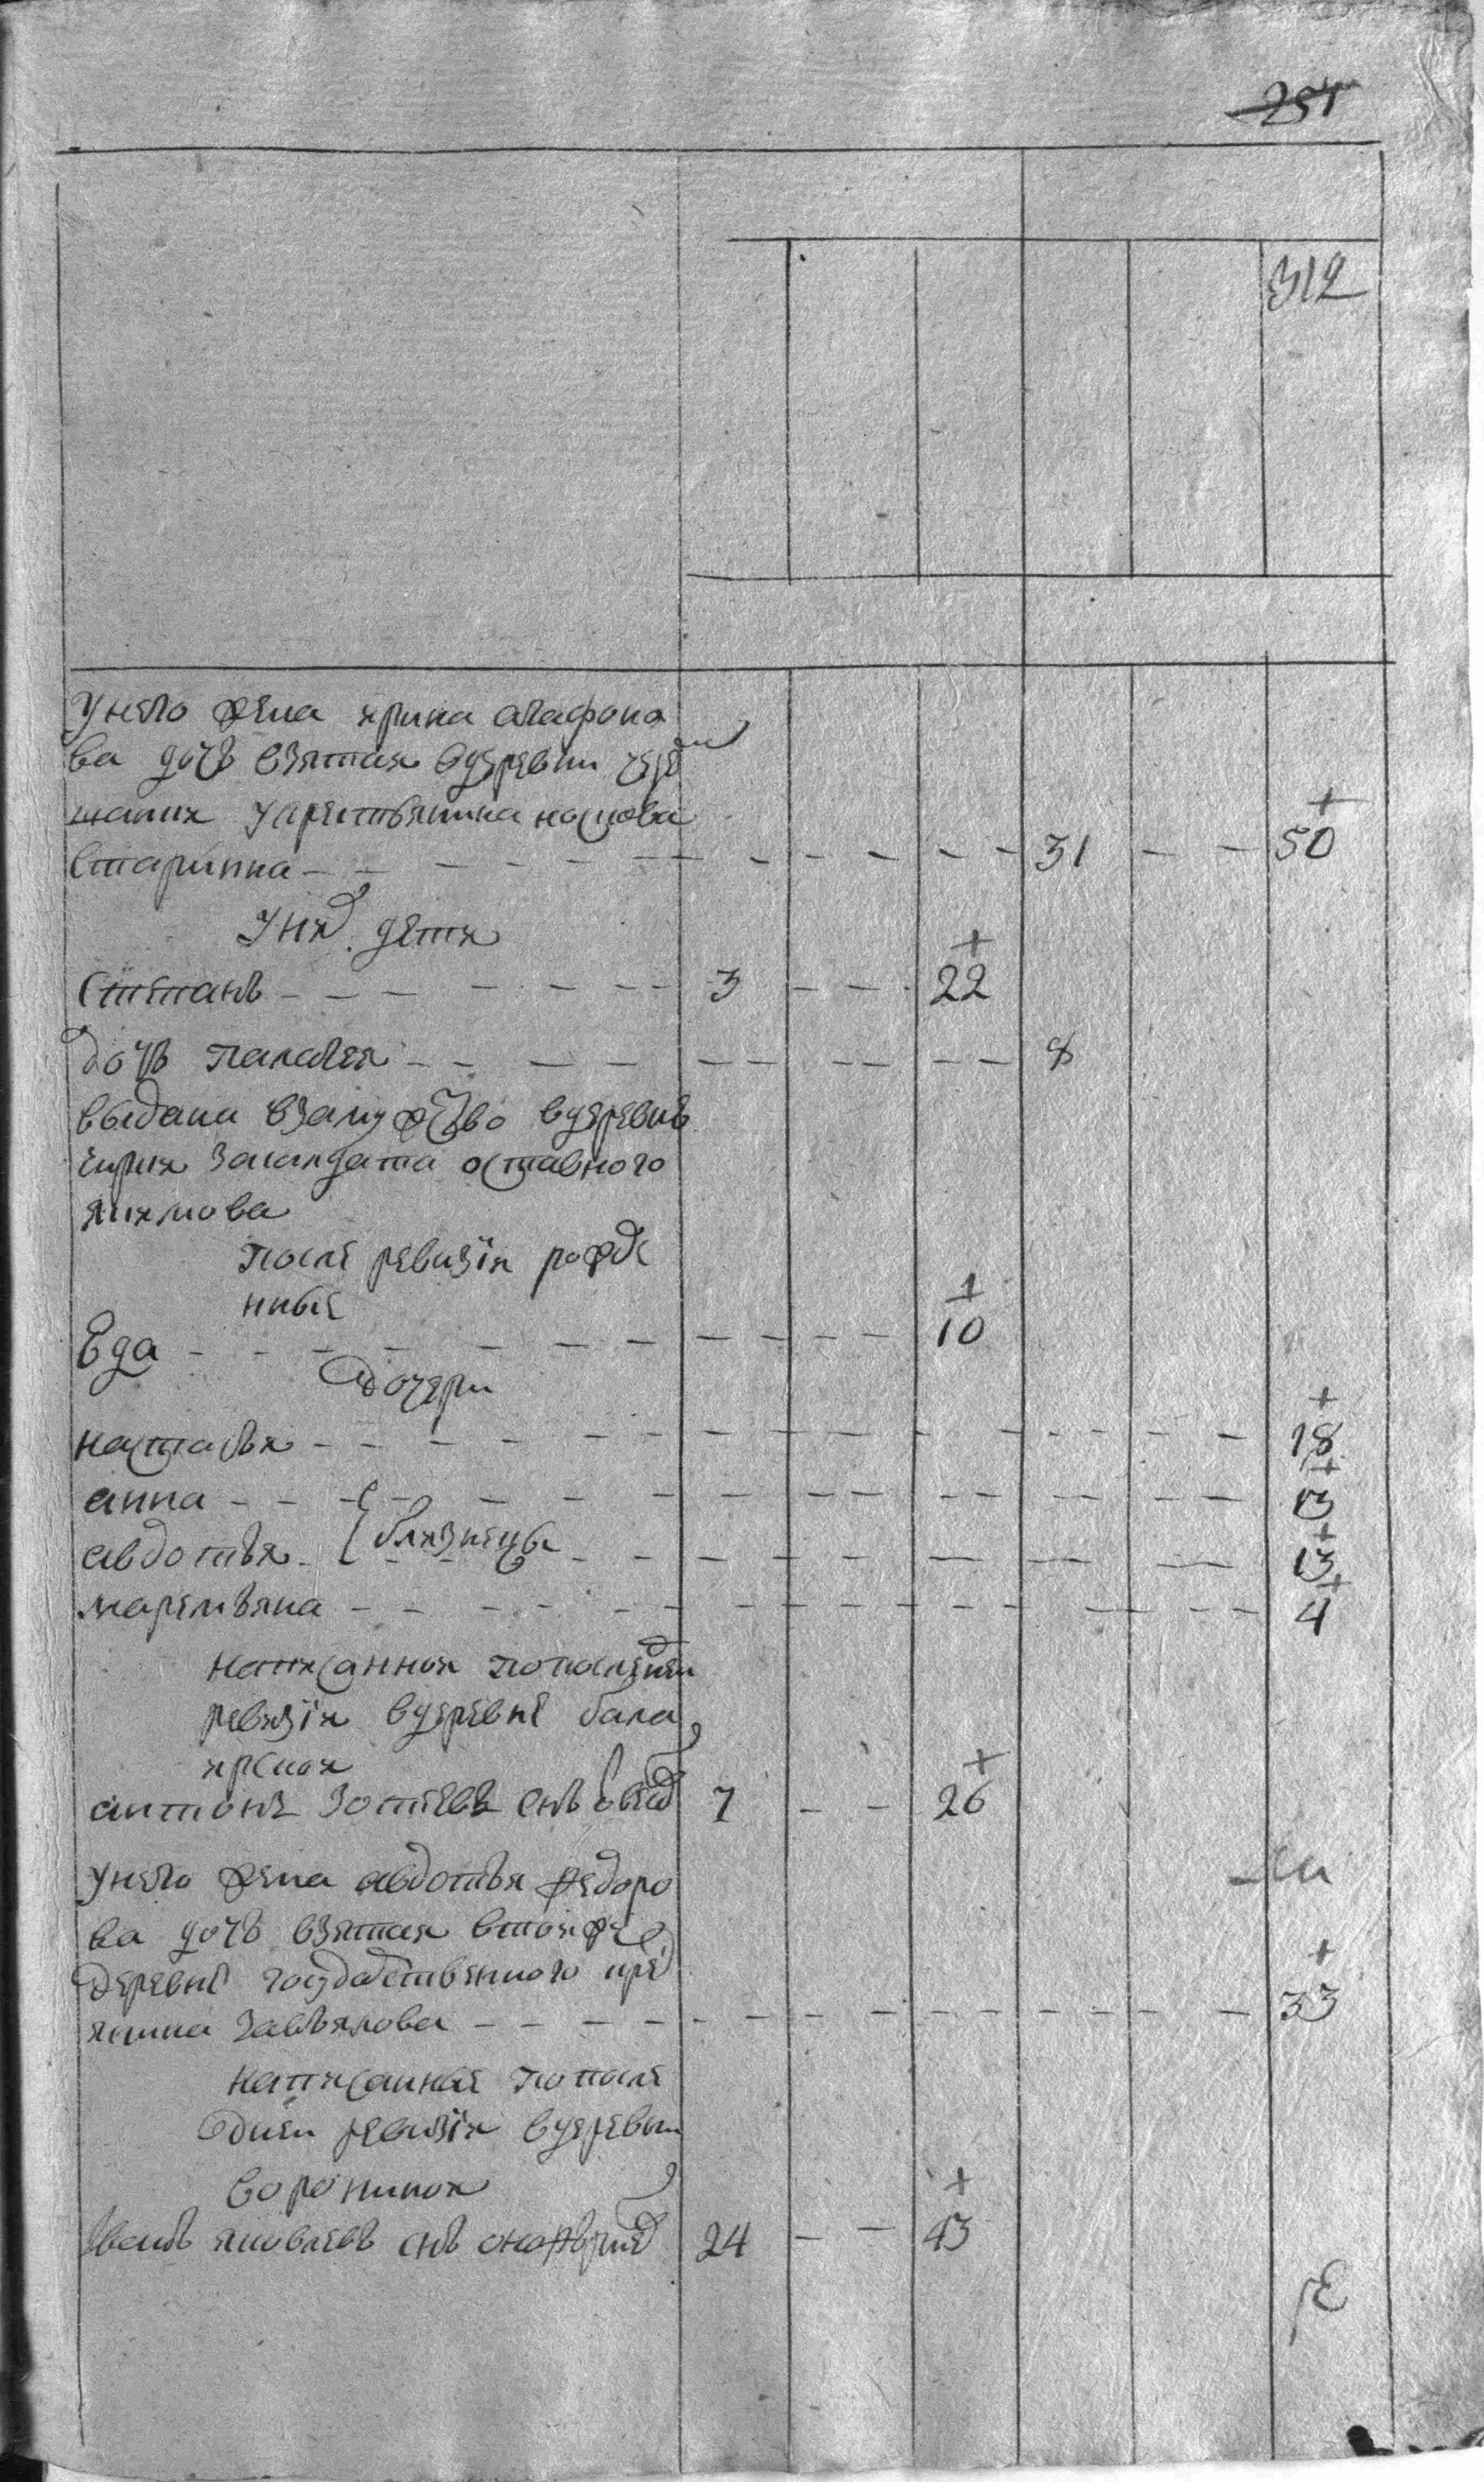 254
312
У него жена ирина агафоно
ва дочь взятая вдеревни
укрестьянина носкова
старинка — — — 31 — — 50
У них дети
Степанъ — — — 3 — — 22
дочь палагея — — — 8
выдана взамужство вдеревнѣ
засолдата отставного
якимова
после ревизiи рожде
нные
— — — 10
дочери
настасья — — — 18
анна — — — 13
близнецы
авдотья — — — 13
маремьяна — — — 4
написанной попоследней
ревизiи вдеревне бала
ярской
антонъ зотеевъ снъ 7 — — 26
унего жена авдотья федоро
ва дочь взятая втойже
деревне государственного кре
янина завьялова — — — 33
написанные попосле
дней ревизiи вдеревни
ворониной
Iванъ яковлевъ снъ 24 — — 43